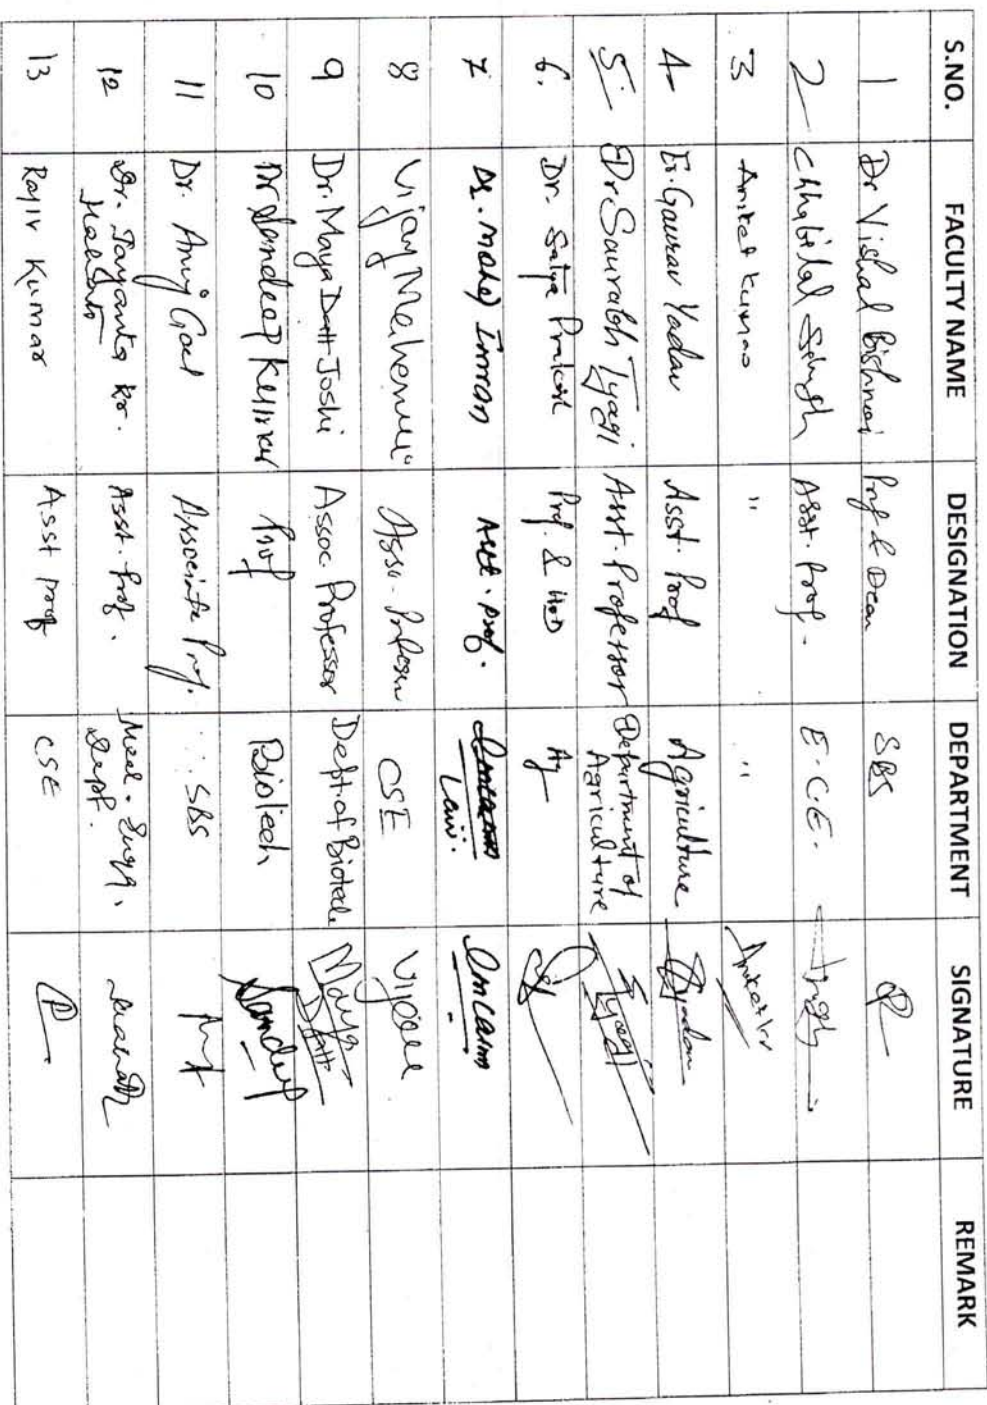 S.NO. FACULTY NAME DESIGNATION DEPARTMENT SIGNATURE REMARK
1 Dr Vishal Bishnoi Prof & Dean SBS
2 Chhabilal Singh Asst. Prof. E.C.E. Singh
3 Aniket Kumar " " Aniket Kr
4 Er. Gaurav Yadav Asst. Prof Agriculture GYadav
5. Dr. Saurabh Tyagi Asst. Professor Department of
Agriculture STyagi
6. Dr. Satya Prakash Prof. & HOD Ag
7 Dr. Mohd Imran Asst. prof.
Law. Imran
8 Vijay Maheshwari Asso. Professor CSE Vijay
9 Dr. Maya Datt Joshi Assoc. Professor Dept. of Biotech Maya
Datt
10 Dr Sandeep Kumar Prof Biotech Sandeep
11 Dr. Anuj Goel Associate Prof. SBS
12 Dr. Jayanta Kr.
Mahato Asst. Prof. Mech. Engg.
Dept. Mahato
13 Rajiv Kumar Asst prof CSE